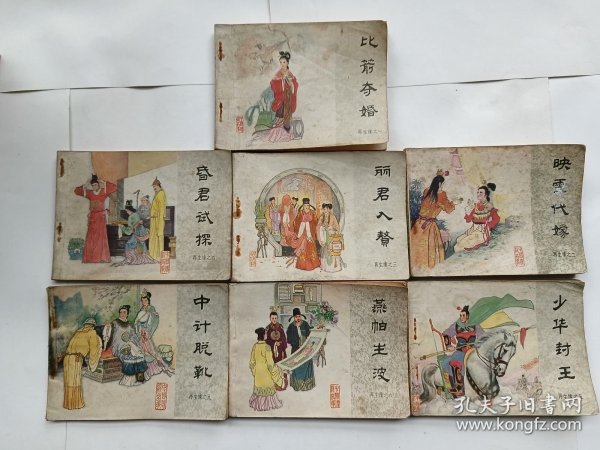 比箭夺婚
再生缘之一
昏君试探
再生缘之
丽君入赘
再生缘之三
映雪代嫁
再生缘之二
中计脱靴
再生缘之
燕帕生波
再生缘之
少华封王
再生缘之
孔夫子旧书网
www.kongfz.com